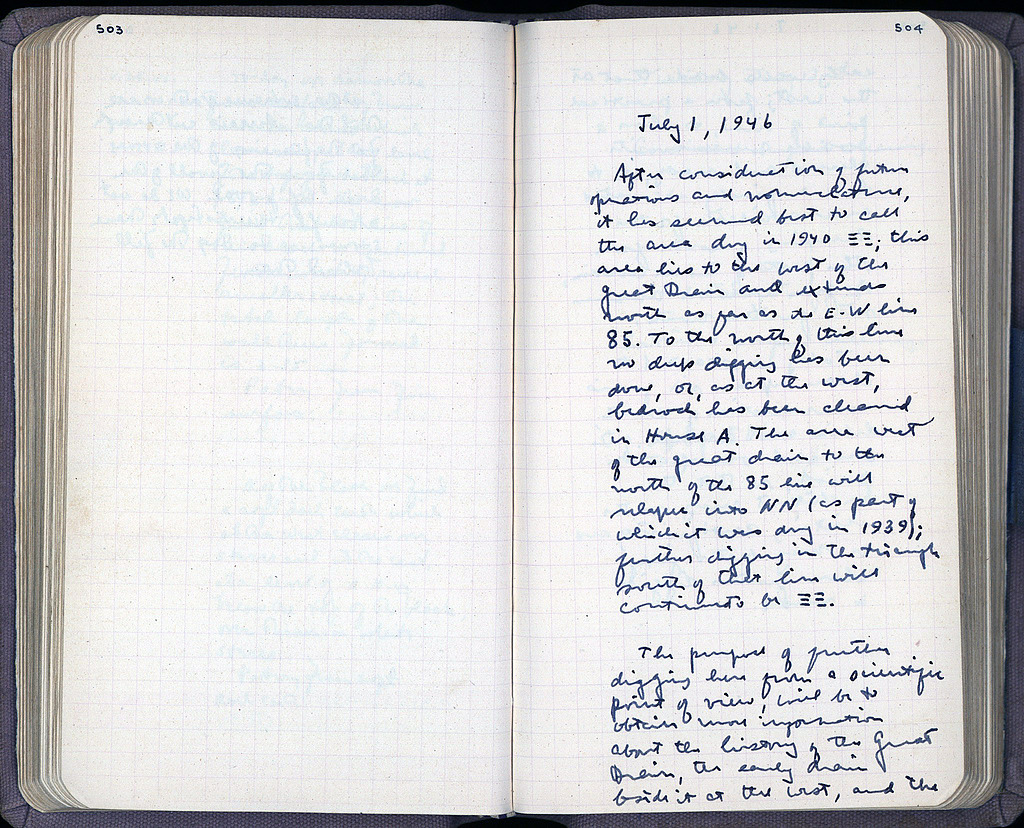 503
504
July 1, 1946
After consideration of future
operations and nomenclature,
it has seemed best to call
the area dug in 1940 ΞΞ; this
area lies to the west of the
great Drain and extends
north as far as the E-W line
85. To the north of this line
no deep digging has been
done, or, as at the west,
bedrock has been cleared
in House A. The area west
of the great drain to the
north of the 85 line will
relapse into NN (as part of
which it was dug in 1939);
further digging in the triangle
south of that line will
continue to be ΞΞ.
The purpose of further
digging here from a scientific
point of view, will be to
obtain more information
about the history of the Great
Drain, the early drain
beside it at the west, and the